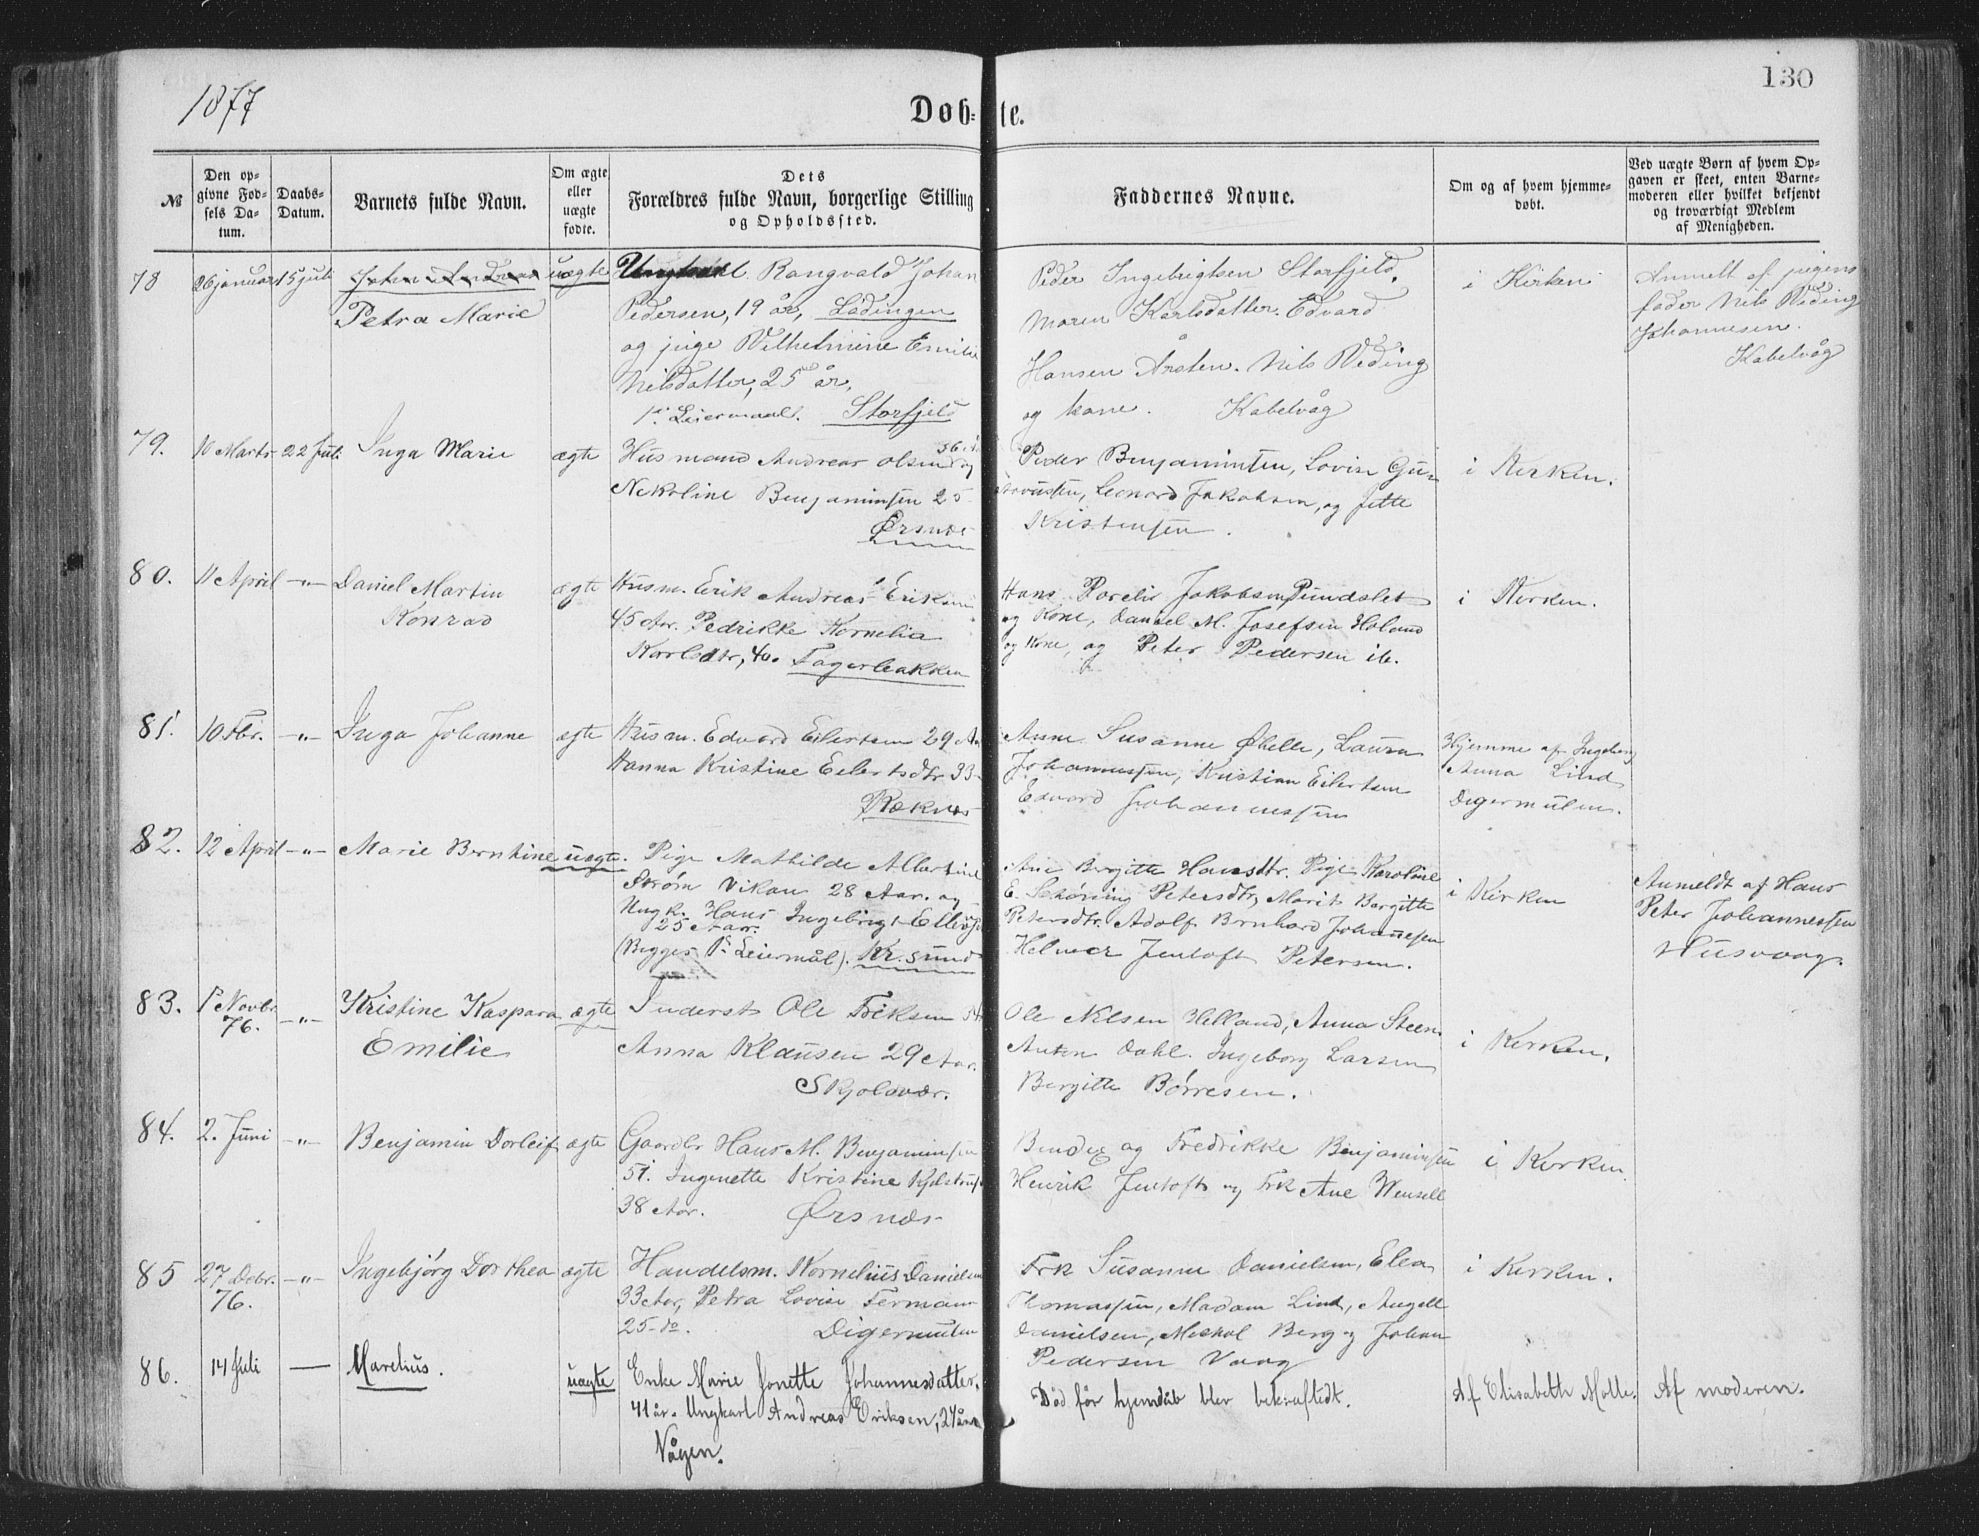 1877
130
Døb-te.
№
Den op-
givne Fød-
sels Da-
tum.
Daabs-
Datum.
Barnets fulde Navn.
Om ægte
eller
uægte
fødte.
Dets
Forældres fulde Navn, borgerlige Stilling
og Opholdssted.
Faddernes Navne.
Om og af hvem hjemme-
døbt.
Ved uægte Børn af hvem Op-
gaven er skeet, enten Barne-
moderen eller hvilket bekjendt
og troværdigt Medlem
af Menigheden.
78 26 januar 15 juli uægte Ungkarl Rangvald Johan
Petra Marie
Pedersen, 19 år, Lødingen
og pige Wilhelmine Emilie
Nilsdatter, 25 år,
1ste Leiermaal. Storfjeld
Peder Ingebrigtsen Storfjeld.
Maren Karlsdatter. Edvard
Hansen Årsten. Nils Weding
og kone. Kabelvåg
i Kirken
Anmelt af pigens
fader Nils Weding
Johannesen.
Kabelvåg
79. 10 Marts 22 Juli Inga Marie ægte Husmand Andreas Olsen 36 og
Nekoline Benjaminsen 25
Ørsnæs
Peder Benjaminsen, Lovise Gu-
stavussen, Leonard Jakobsen, og Jette
Kristensen.
i Kirken.
80. 11 April -"- Daniel Martin ægte Husm. Erik Andreas Eriksen
Konrad
45 Aar. Fedrikke Kornelia
Karlsdtr, 40. Fagerbakken
Hans Jakobsen Pundslet
og Kone, Daniel M. Josefsen Holand
og Kone, og Peter Pedersen ib.
i Kirken.
81. 10 Fbr. -"- Inga Johanne ægte Husm. Edvard Eilertsen 29 Aar
Hanna Kristine Eilertsdtr 33
Ræknes
Anne Susanne Øhelle, Laura
Johannessen, Kristian Eilertsen
Edvard Johannessen
Hjemme af Ingeborg
Anna Lind
Digermulen.
82. 12 April -"- Marie Berntine uægte. Pige Mathilde Albertine
Strøm Vikan 28 Aar. og
Ungk. Hans Ingebrigt Ellefsen
25 Aar.
(Begges 1ste Leiermål). Kr.sund
Ane Bergitte Hansdtr. Pige Karoline
E. Schøning Petersdtr, Marit Bergitte
Petersdtr. Adolf Brnhard Johansen
Helmer Jentoft Petersen.
i Kirken
Anmeldt af Hans
Peter Johannessen
Husvaag.
83. 1ste Novbr. 76. -"- Kristine Kaspara ægte Inderst Ole Eriksen
Emilie
Anna Klausen 29 Aar.
Skjolvær.
Ole Nilsen Helland, Anna Steen
Anton Dahl. Ingeborg Larsen
Bergitte Børresen.
i Kirken.
84. 2. Juni -"- Benjamin Dorleif ægte Gaardbr Hans M. Benjaminsen
51. Ingenette Kristine Kjelstrup
38 Aar. Ørsnæs
Bendix og Fredrikke Benjaminsen
Henrik Jentoft og Frk Ane Wensell
i Kirken.
85 27 Debr. 76. -"- Ingebjørg Dorthea ægte Handelsm. Kornelius Danielsen
33 Aar, Petra Lovise Fermann
25 do. Digermulen
Frk Susanne Danielsen, Elea
Thomassen, Madam Lind, Angell
Danielsen, Meskal Berg og Johan
Pedersen Vaag
i Kirken.
86. 14 Juli — Marelius. uægte Enke Marie Jonette Johannesdatter.
41 år. Ungkarl Andreas Eriksen, 24 år.
Vågen.
Død før hjemdåb blev bekræftedt.
Af Elisabeth Molle.
Af moderen.